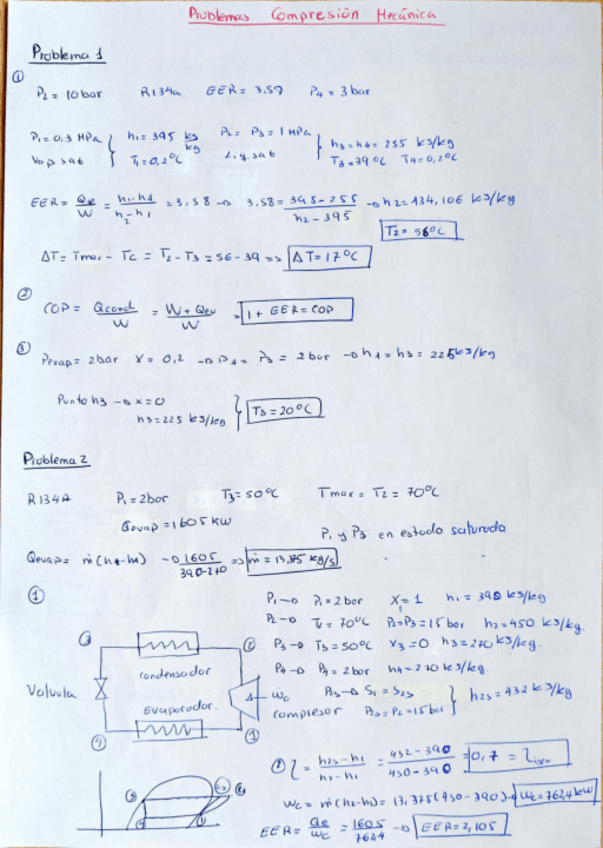 Problemas Compresión Mecánica
Problema 1
①
P₂ = 10 bar R134a EER = 3.59 P₄ = 3 bar
P₁ = 0,3 MPa h₁ = 395 kJ/kg P₂ = P₃ = 1 MPa h₃ = h₄ = 255 kJ/kg
Vap sat T₁ = 0,2°C Liq. sat T₃ = 39°C T₄ = 0,2°C
EER = Qe/W = h₁-h₄/h₂-h₁ = 3,58 → 3,58 = 395-255/h₂-395 → h₂ = 434,106 kJ/kg
T₂ = 56°C
ΔT = Tmax - Tc = T₂ - T₃ = 56-39 => ΔT = 17°C
②
COP = Qcond/W = W + Qev/W = 1 + EER = COP
③
Pevap = 2bar X = 0,2 → P₄ = P₃ = 2 bar → h₄ = h₃ = 225 kJ/kg
Punto h₃ → x = 0
h₃ = 225 kJ/kg T₃ = 20°C
Problema 2
R134A P₁ = 2bar T₃ = 50°C Tmax = T₂ = 70°C
Qevap = 1605 kW
P₁ y P₃ en estado saturada
Qevap = ṁ(h₁-h₄) → 1605/390-270 => ṁ = 13,375 kg/s
①
P₁ → P₁ = 2 bar X₁ = 1 h₁ = 390 kJ/kg
P₂ → T₂ = 70°C P₂ = P₃ = 15 bar h₂ = 450 kJ/kg.
P₃ → T₃ = 50°C x₃ = 0 h₃ = 270 kJ/kg.
P₄ → P₄ = 2 bar h₄ = 270 kJ/kg.
P₂s → S₁ = S₂s
P₂s = P₂ = 15 bar h₂s = 432 kJ/kg
③ ② condensador
Valvula
Evaporador.
Wc
compresor
④ ①
② η = h₂s-h₁/h₂-h₁ = 432-390/450-390 = 0,7 = ηisen
Wc = ṁ(h₂-h₁) = 13,375(450-390) → Wc = 762,4 kW
EER = Qe/Wc = 1605/762,4 → EER = 2,105